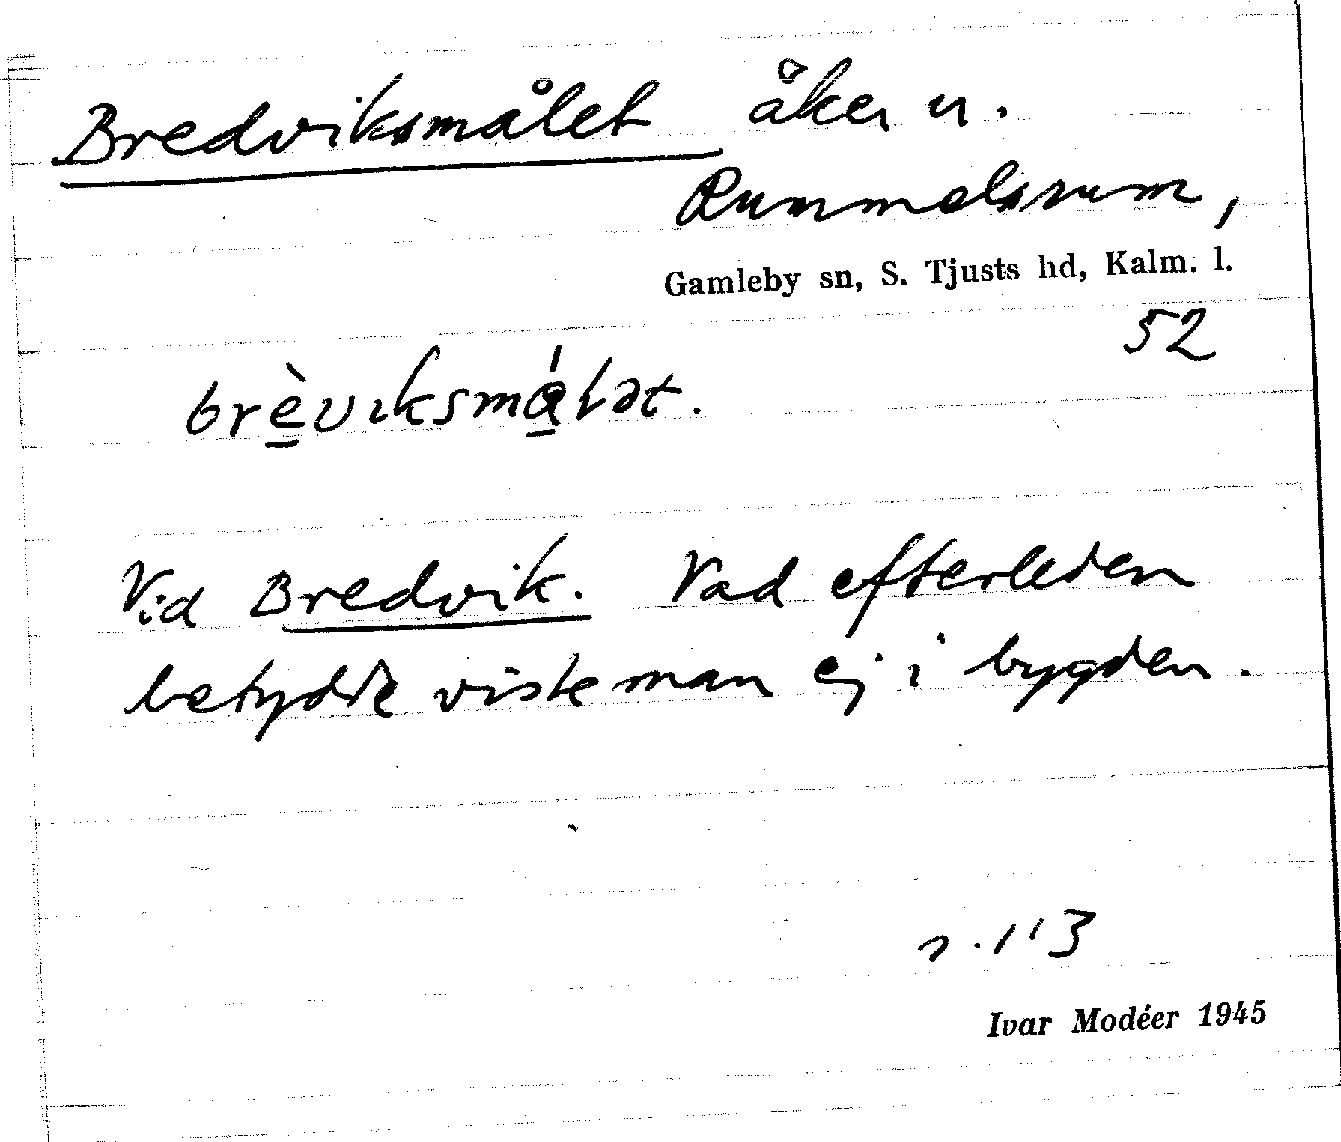 Bredviksmålet åker u.
Rummelsrum,
Gamleby sn, S. Tjusts hd, Kalm. l.
52
Vid Bredvik. Vad efterleden
betydde visste man ej i bygden.
113
Ivar Modéer 1945